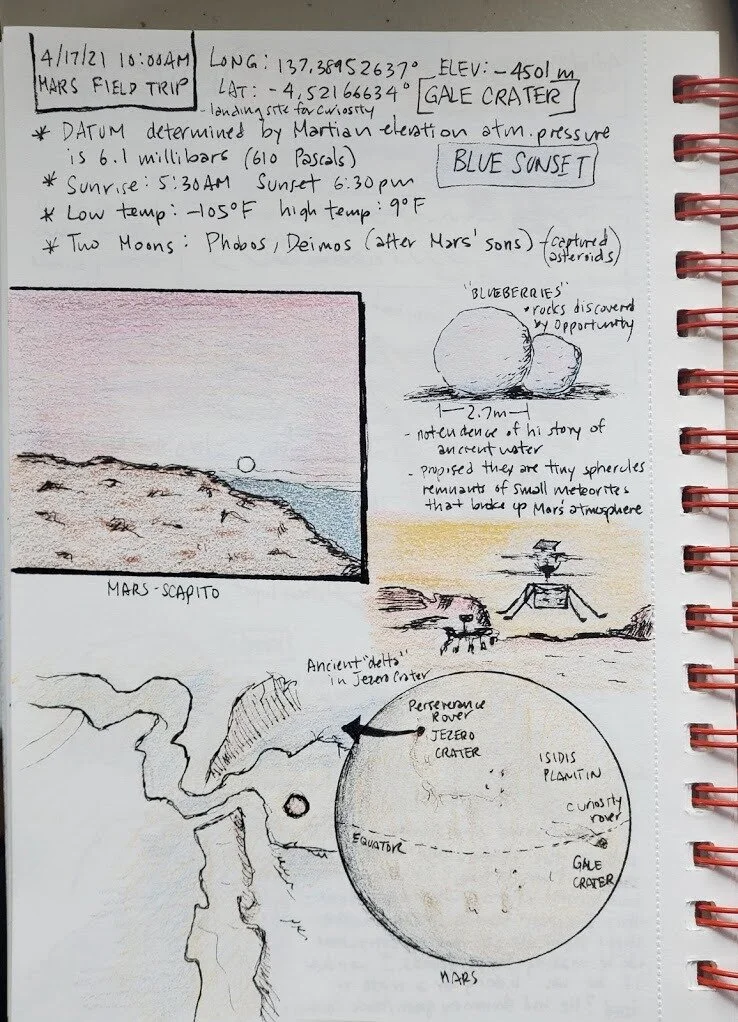 4/17/21 10:00AM
MARS FIELD TRIP
LONG: 137.38952637° ELEV: -4501 m
LAT: -4.52166634° GALE CRATER
- landing site for Curiosity
* DATUM determined by Martian elevation atm. pressure
is 6.1 millibars (610 Pascals)
BLUE SUNSET
* Sunrise: 5:30AM Sunset 6:30pm
* Low temp: -105°F high temp: 9°F
* Two Moons: Phobos, Deimos (after Mars' sons) - (captured
asteroids)
"BLUEBERRIES"
* rocks discovered
by Opportunity
2.7m
- not evidence of history of
ancient water
- proposed they are tiny sphercles
remnants of small meteorites
that broke up Mars' atmosphere
MARS-SCAPITO
Ancient "delta"
in Jezero Crater
Perserverance
Rover
JEZERO
CRATER
ISIDIS
PLANITIN
Curiosity
rover
EQUATOR
GALE
CRATER
MARS